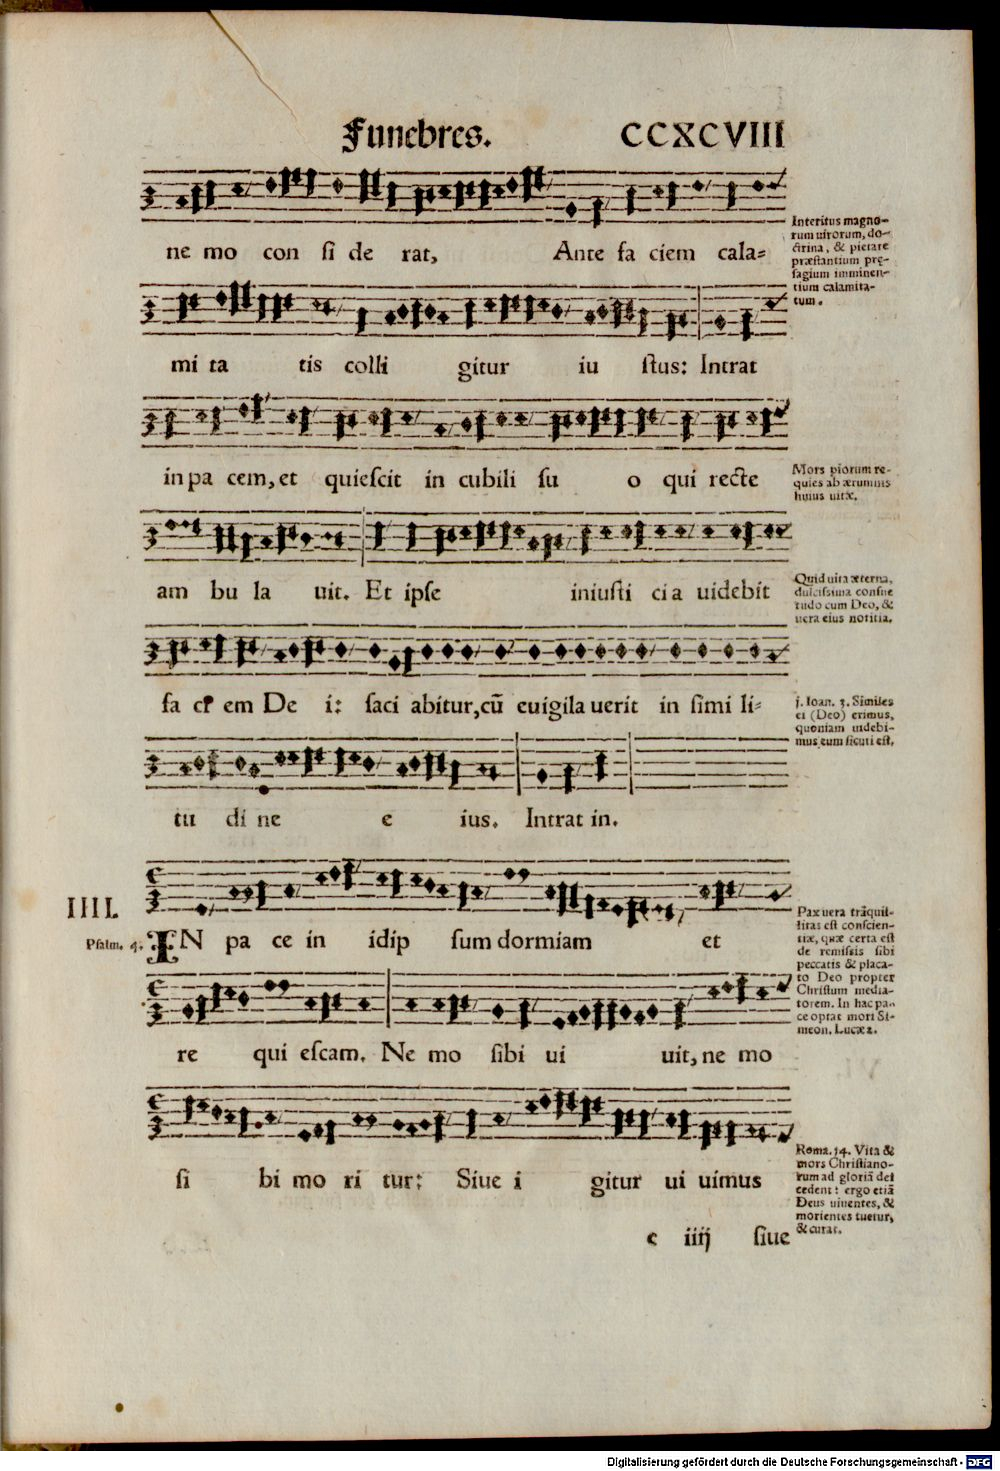 Funebres. CCXCVIII
ne mo con ſi de rat, Ante fa ciem cala⸗
Interitus magno⸗
rum uirorum, do⸗
ctrina, & pietate
præſtantium pręſagium imminen⸗
tium calamita⸗
tum.
mi ta tis colli gitur iu ſtus: Intrat
in pa cem, et quieſcit in cubili ſu o qui recte
Mors piorum re⸗
quies ab ærumnis
huius uitæ.
am bu la uit. Et ipſe iniuſti ci a uidebit
Quid uita æterna,
dulciſſima conſue
tudo cum Deo, &
uera eius notitia.
fa ci em De i: ſaci abitur, cū euigila uerit in ſimi li⸗
j. Ioan. 3. Similes
ei (Deo) erimus,
quoniam uidebi⸗
mus eum ſicuti eſt.
tu di ne e ius. Intrat in.
IIII.
Pſalm. 4.
IN pa ce in idip ſum dormiam et
Pax uera trāquil⸗
litas eſt conſcien⸗
tiæ, quæ certa eſt
de remiſsis ſibi
peccatis & placa⸗
to Deo propter
Chriſtum media⸗
torem. In hac pa⸗
ce optat mori Si⸗
meon. Lucæ 2.
re qui eſcam. Ne mo ſibi ui uit, ne mo
ſi bi mo ri tur: Siue i gitur ui uimus
Roma. 14. Vita &
mors Chriſtiano⸗
rum ad gloriā dei
cedent: ergo etiā
Deus uiuentes, &
morientes tuetur,
& curat.
e iiij ſiue
Digitalisierung gefördert durch die Deutsche Forschungsgemeinschaft - DFG